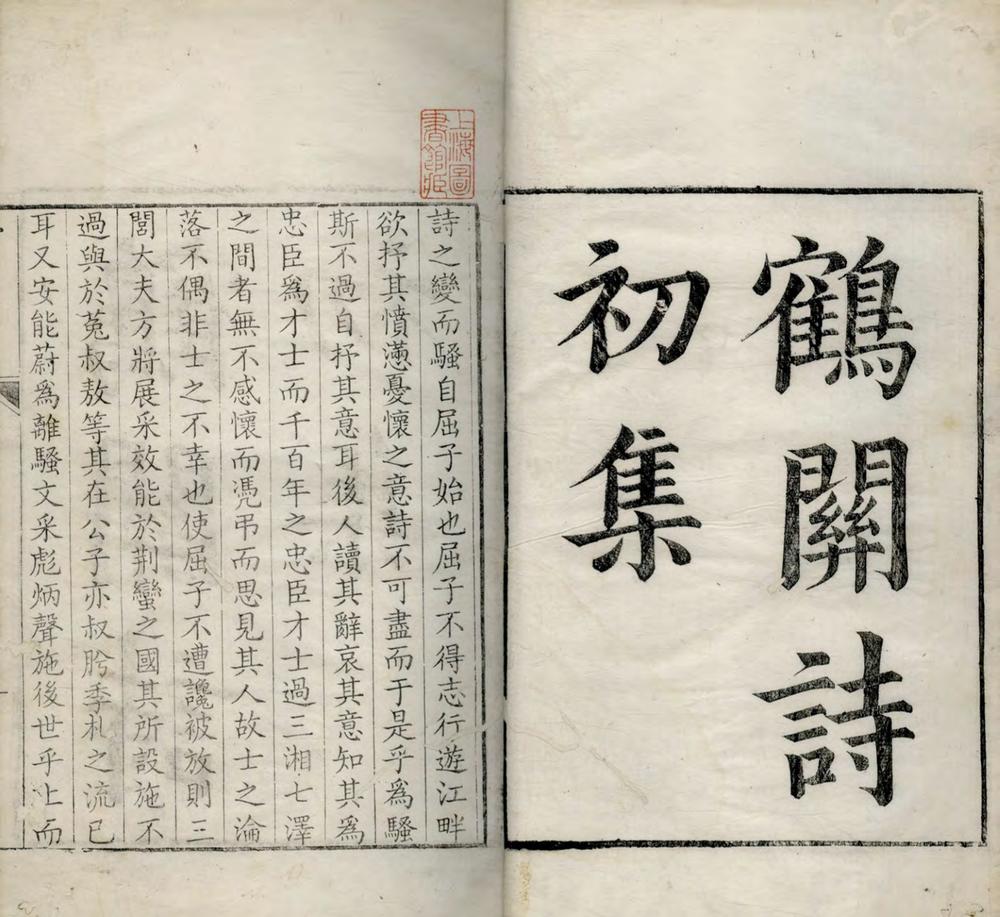 鶴關詩
初集
上海圖
書館藏
詩之變而騷自屈子始也屈子不得志行遊江畔
欲抒其憤懣憂懷之意詩不可盡而于是乎為騷
斯不過自抒其意耳後人讀其辭哀其意知其為
忠臣為才士而千百年之忠臣才士過三湘七澤
之間者無不感懷而憑弔而思見其人故士之淪
落不偶非士之不幸也使屈子不遭讒被放則三
閭大夫方將展采效能於荆蠻之國其所設施不
過與於菟叔敖等其在公子亦叔肹季札之流已
耳又安能蔚為離騷文采彪炳聲施後世乎上而